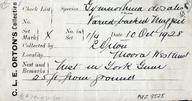 C. L. E. ORTON'S Collection
Check List
Species Gymnorhina dorsalis
Varied backed Magpie
Set Mark X 1/3 Date 10 Oct. 1928
Collected by R Orton
Locality Moora West Aust
Nest and Remarks Nest in York Gum
25 ft from ground